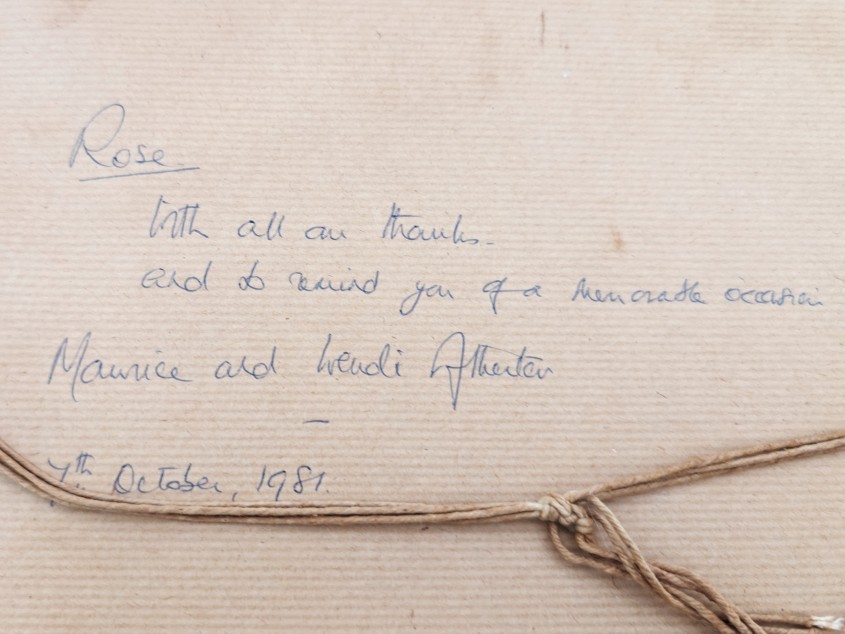 Rose
With all our thanks.
and to remind you of a memorable occasion
Maurice and Wendi Atherton
—
7th October, 1981.